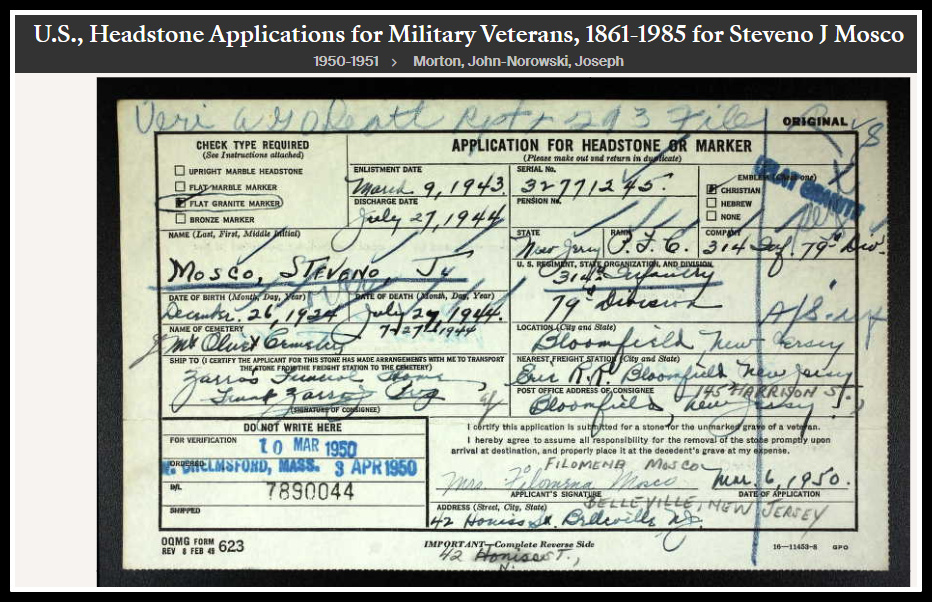 U.S., Headstone Applications for Military Veterans, 1861-1985 for Steveno J Mosco
1950-1951 > Morton, John-Norowski, Joseph
Veri Death Rpt 293 File
ORIGINAL
CHECK TYPE REQUIRED
(See Instructions attached)
UPRIGHT MARBLE HEADSTONE
FLAT MARBLE MARKER
FLAT GRANITE MARKER
BRONZE MARKER
APPLICATION FOR HEADSTONE OR MARKER
(Please make out and return in duplicate)
ENLISTMENT DATE
March 9, 1943.
DISCHARGE DATE
July 27, 1944
SERIAL No.
32771245.
PENSION No.
EMBLEM (Check one)
CHRISTIAN
HEBREW
NONE
FLAT GRANITE
NAME (Last, First, Middle Initial)
MOSCO, STEVENO, J
STATE
New Jersey
RANK
P.F.C.
COMPANY
314 Inf. 79th Div.
U. S. REGIMENT, STATE ORGANIZATION, AND DIVISION
314th Infantry
79th Division
DATE OF BIRTH (Month, Day, Year)
December 26, 1924
DATE OF DEATH (Month, Day, Year)
July 27, 1944.
7-27-1944
NAME OF CEMETERY
Mt Olivet Cemetery
LOCATION (City and State)
Bloomfield, New Jersey
SHIP TO (I CERTIFY THE APPLICANT FOR THIS STONE HAS MADE ARRANGEMENTS WITH ME TO TRANSPORT
THE STONE FROM THE FREIGHT STATION TO THE CEMETERY)
Zarros Funeral Home
Frank Zarro
(SIGNATURE OF CONSIGNEE)
NEAREST FREIGHT STATION (City and State)
Erie R.R. Bloomfield New Jersey
POST OFFICE ADDRESS OF CONSIGNEE
145 HARRISON ST.
Bloomfield, New Jersey
DO NOT WRITE HERE
FOR VERIFICATION
10 MAR 1950
ORDERED
W. CHELMSFORD, MASS. 3 APR 1950
B/L
7890044
SHIPPED
I certify this application is submitted for a stone for the unmarked grave of a veteran.
I hereby agree to assume all responsibility for the removal of the stone promptly upon
arrival at destination, and properly place it at the decedent's grave at my expense.
FILOMENA MOSCO
Mrs. Filomena Mosco
Mar. 6, 1950.
APPLICANT'S SIGNATURE
DATE OF APPLICATION
BELLEVILLE, NEW JERSEY
ADDRESS (Street, City, State)
42 Honiss St. Belleville N.J.
OQMG FORM
REV 8 FEB 49 623
IMPORTANT—Complete Reverse Side
16—11453-8 GPO
42 Honiss ST.,